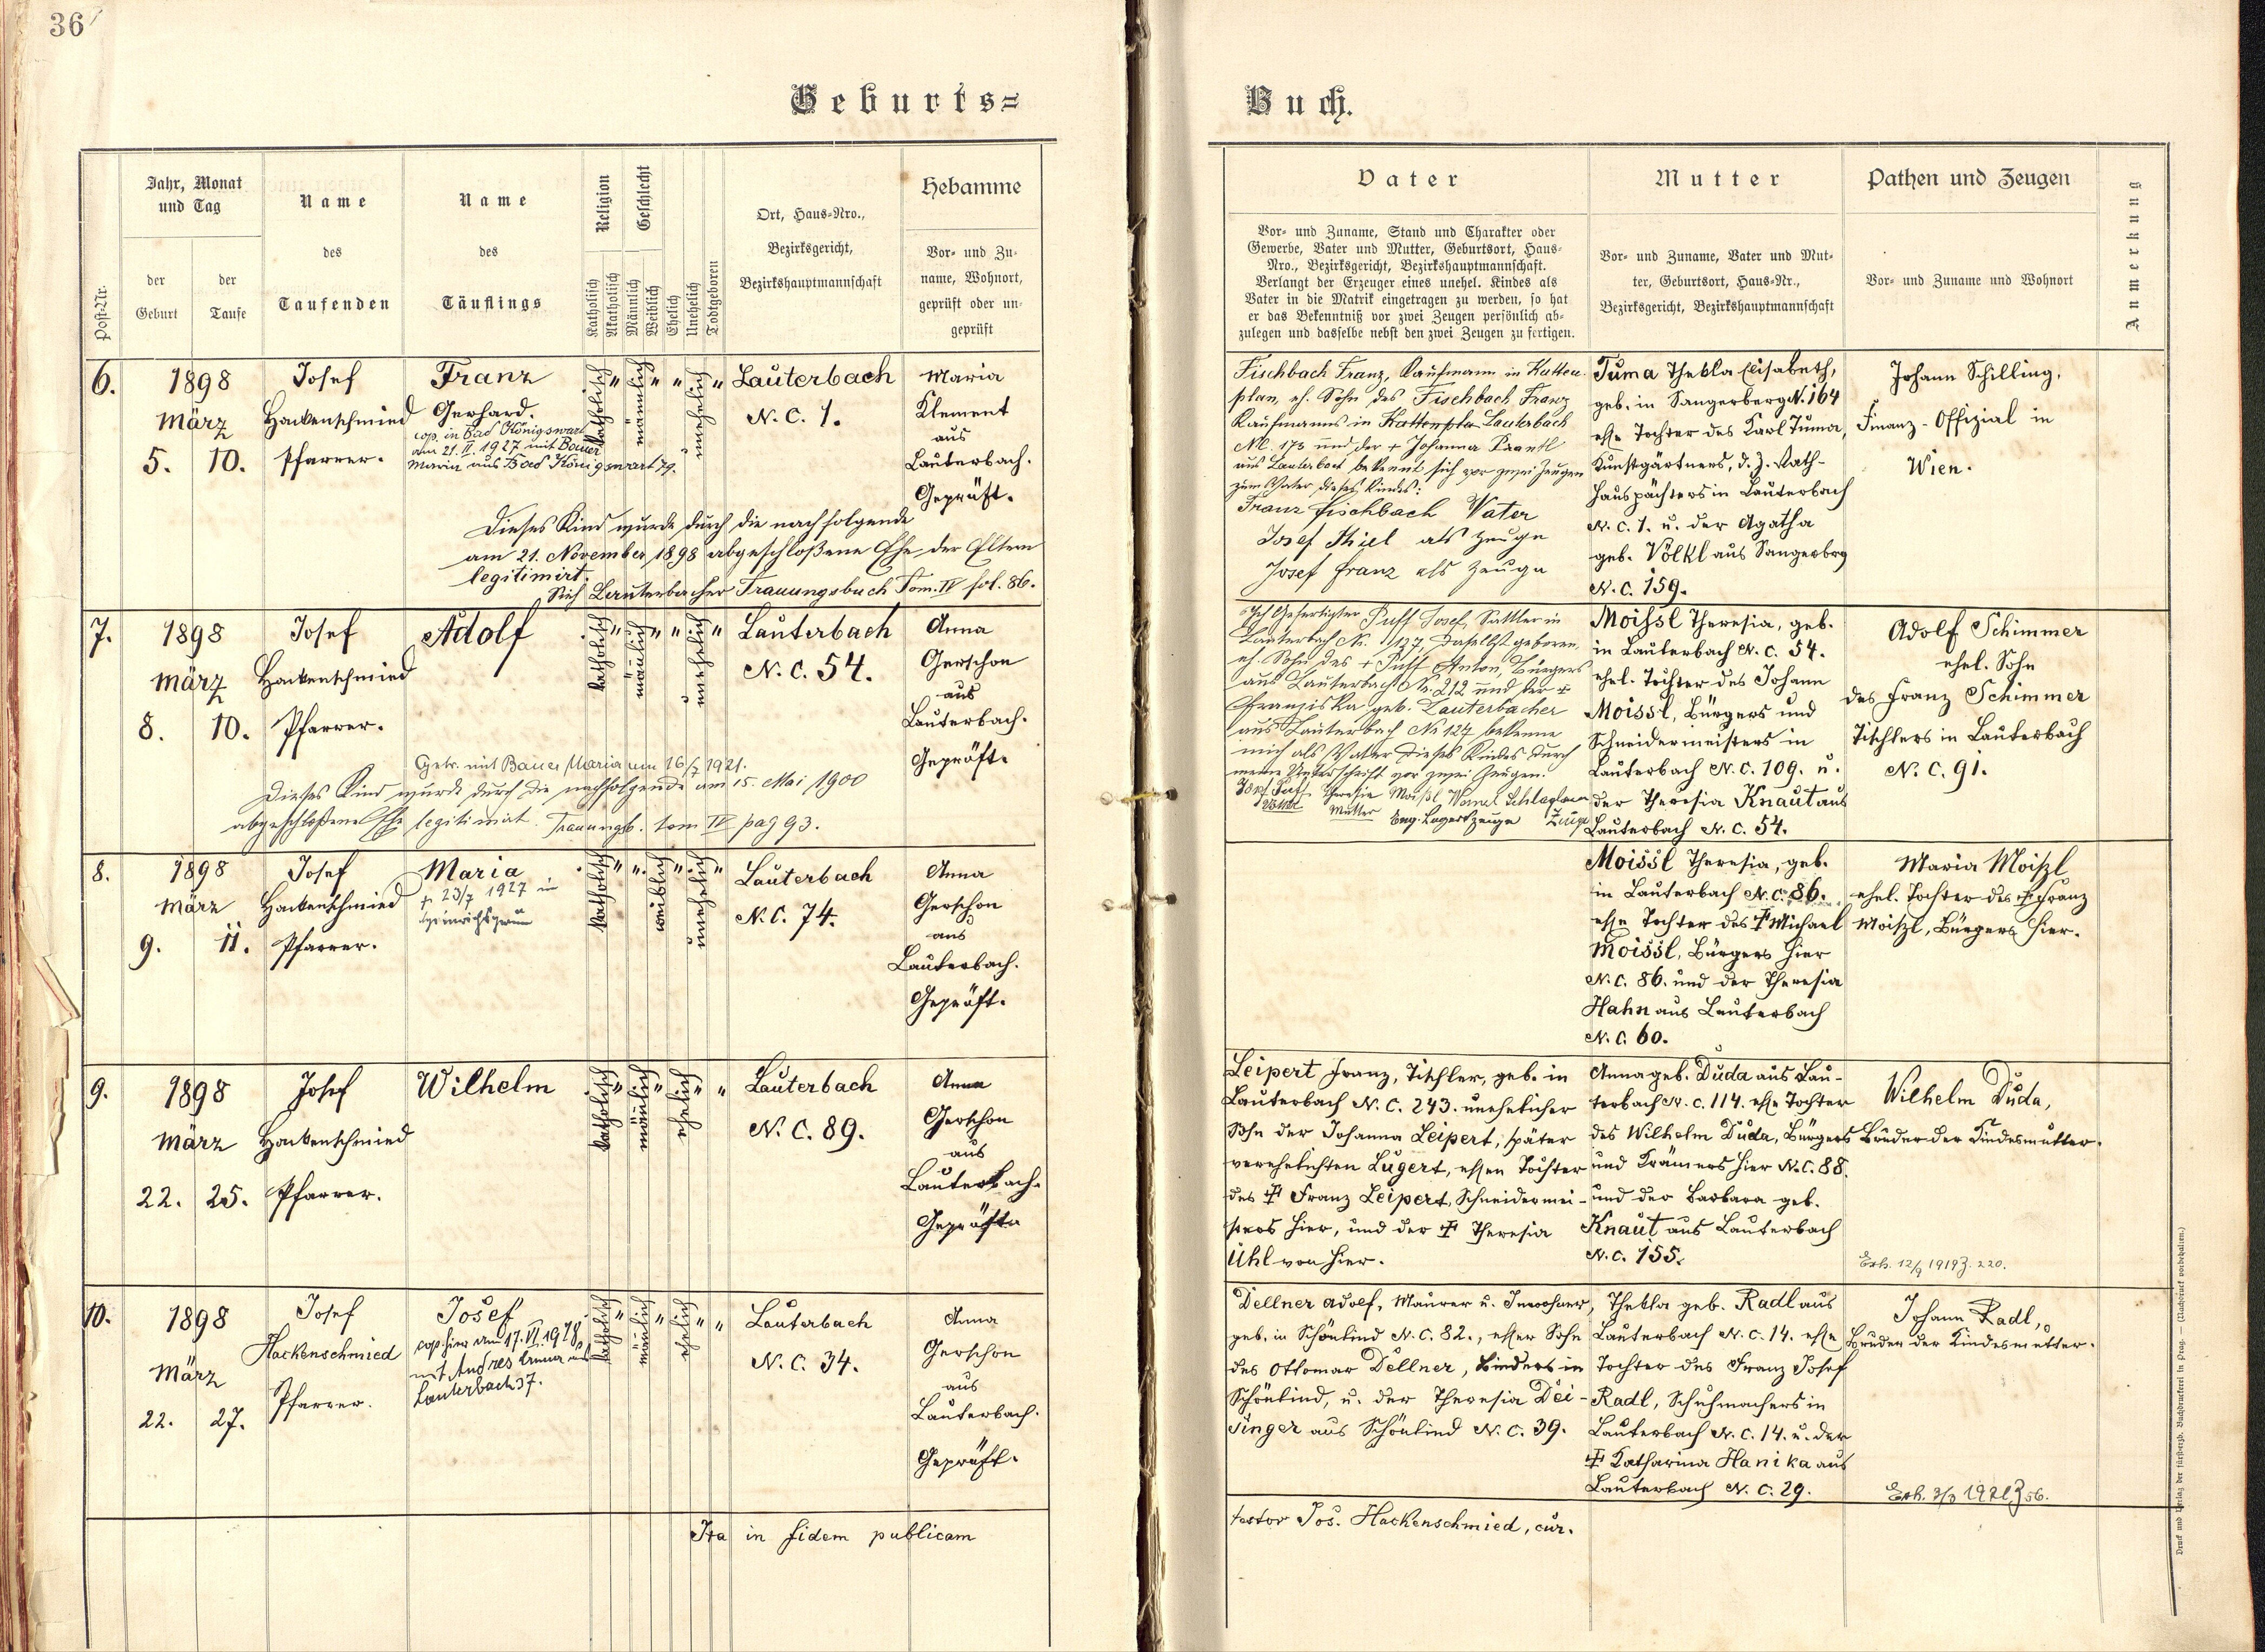 36
Geburts=
Buch.
Post-Nr.
Jahr, Monat
und Tag
der
Geburt
der
Taufe
Name
des
Taufenden
Name
des
Täuflings
Religion
Katholisch
Akatholisch
Geschlecht
Männlich
Weiblich
Ehelich
Unehelich
Todtgeboren
Ort, Haus-Nro.,
Bezirksgericht,
Bezirkshauptmannschaft
Hebamme
Vor- und Zu-
name, Wohnort,
geprüft oder un-
geprüft
Vater
Vor- und Zuname, Stand und Charakter oder
Gewerbe, Vater und Mutter, Geburtsort, Haus-
Nro., Bezirksgericht, Bezirkshauptmannschaft.
Verlangt der Erzeuger eines unehel. Kindes als
Vater in die Matrik eingetragen zu werden, so hat
er das Bekenntniß vor zwei Zeugen persönlich ab-
zulegen und dasselbe nebst den zwei Zeugen zu fertigen.
Mutter
Vor- und Zuname, Vater und Mut-
ter, Geburtsort, Haus-Nr.,
Bezirksgericht, Bezirkshauptmannschaft
Pathen und Zeugen
Vor- und Zuname und Wohnort
Anmerkung
6.
1898
März
5. 10.
Josef
Hackenschmied
Pfarrer.
Franz
Gerhard.
cop. in Bad Königswart
am 21. II. 1927 mit Bauer
Maria aus Bad Königswart 79.
katholisch " männlich " " unehelich "
Lauterbach
N. C. 1.
Maria
Klement
aus
Lauterbach.
Geprüft.
Dieses Kind wurde durch die nachfolgende
am 21. November 1898 abgeschloßene Ehe der Eltern
legitimirt.
Sieh Lauterbacher Trauungsbuch Tom. IV fol. 86.
Fischbach Franz, Kaufmann in Kutten-
plan, eh. Sohn des Fischbach Franz
Kaufmanns in Lauterbach
Nr. 173 und der + Johanna
aus Lauterbach bekennt sich vor zwei Zeugen
zum Vater dieses Kindes:
Franz Fischbach Vater
Josef Thiel als Zeuge
Josef Franz als Zeuge
Tuma Thekla Elisabeth,
geb. in Sangerberg N. 164
ehe Tochter des Karl Tuma,
Kunstgärtners, d. Z. Rath-
hauspächters in Lauterbach
N. C. 1. u. der Agatha
geb. Völkl aus Sangerbrg
N. C. 159.
Johann Schilling,
Finanz-Offizial in
Wien.
7.
1898
März
8. 10.
Josef
Hackenschmied
Pfarrer.
Adolf
katholisch " männlich " " unehelich "
Lauterbach
N. C. 54.
Anna
Gerschon
aus
Lauterbach.
Geprüft.
Getr. mit Bauer Maria am 16/7 1921.
Dieses Kind wurde durch die nachfolgende am 15. Mai 1900
abgeschloßene Ehe legitimirt. Trauungsb. tom IV pag 93.
Ich Gefertigter Puff Josef, Sattler in
Lauterbach Nr. 127, daselbst geboren,
eh. Sohn des + Puff Anton, Bürgers
aus Lauterbach Nr. 212 und der +
Franziska geb. Lauterbacher
aus Lauterbach Nr 127 bekenne
mich als Vater dieses Kindes durch
meine Unterschrift vor zwei Zeugen.
Josef Puff Theresia Moißl Wenzel
Vater Mutter Zeuge
Moissl Theresia, geb.
in Lauterbach N. C. 54.
ehel. Tochter des Johann
Moissl, Bürgers und
Schneidermeisters in
Lauterbach N. C. 109. u.
der Theresia Knaut aus
Lauterbach N. C. 54.
Adolf Schimmer
ehel. Sohn
des Franz Schimmer
Tischlers in Lauterbach
N. C. 91.
8.
1898
März
9. 11.
Josef
Hackenschmied
Pfarrer.
Maria
+ 23/7 1927 in
Heinrichsgrün
katholisch " " weiblich " unehelich "
Lauterbach
N. C. 74.
Anna
Gerschon
aus
Lauterbach.
Geprüft.
Moissl Theresia, geb.
in Lauterbach N. C. 86.
ehe Tochter des ‡ Michael
Moissl, Bürgers hier
N. C. 86. und der Theresia
Hahn aus Lauterbach
N. C. 60.
Maria Moißl
ehel. Tochter des ‡ Franz
Moißl, Bürgers hier.
9.
1898
März
22. 25.
Josef
Hackenschmied
Pfarrer.
Wilhelm
katholisch " männlich " ehelich " "
Lauterbach
N. C. 89.
Anna
Gerschon
aus
Lauterbach.
Geprüft.
Leipert Franz, Tischler, geb. in
Lauterbach N. C. 243. unehelicher
Sohn der Johanna Leipert, später
verehelichten Lugert, ehen Tochter
des ‡ Franz Leipert, Schneidermei-
sters hier, und der ‡ Theresia
Uhl von hier.
Anna geb. Duda aus Lau-
terbach N. C. 114. ehe Tochter
des Wilhelm Duda, Bürgers
und Krämers hier N. C. 88.
und der Barbara geb.
Knaut aus Lauterbach
N. C. 155.
Wilhelm Duda,
Bruder der Kindesmutter.
Erh. 12/9 1919 Z. 220.
10.
1898
März
22. 27.
Josef
Hackenschmied
Pfarrer.
Josef
cop. hier am 17. VI. 1928
mit Andres aus
Lauterbach 37.
katholisch " männlich " ehelich " "
Lauterbach
N. C. 34.
Anna
Gerschon
aus
Lauterbach.
Geprüft.
Dellner Adolf, Maurer u. Inwohner,
geb. in Schönlind N. C. 82., eher Sohn
des Ottomar Dellner, Binders in
Schönlind, u. der Theresia Dei-
singer aus Schönlind N. C. 39.
Thekla geb. Radl aus
Lauterbach N. C. 14. ehe
Tochter des Franz Josef
Radl, Schuhmachers in
Lauterbach N. C. 14. u. der
‡ Katharina Hanika aus
Lauterbach N. C. 29.
Johann Radl,
Bruder der Kindesmutter.
Erh. 3/3 1921 Z 56.
Ita in fidem publicam
testor Jos. Hackenschmied, cur.
Druck und Verlag der fürsterzb. Buchdruckerei in Prag. — (Nachdruck vorbehalten.)